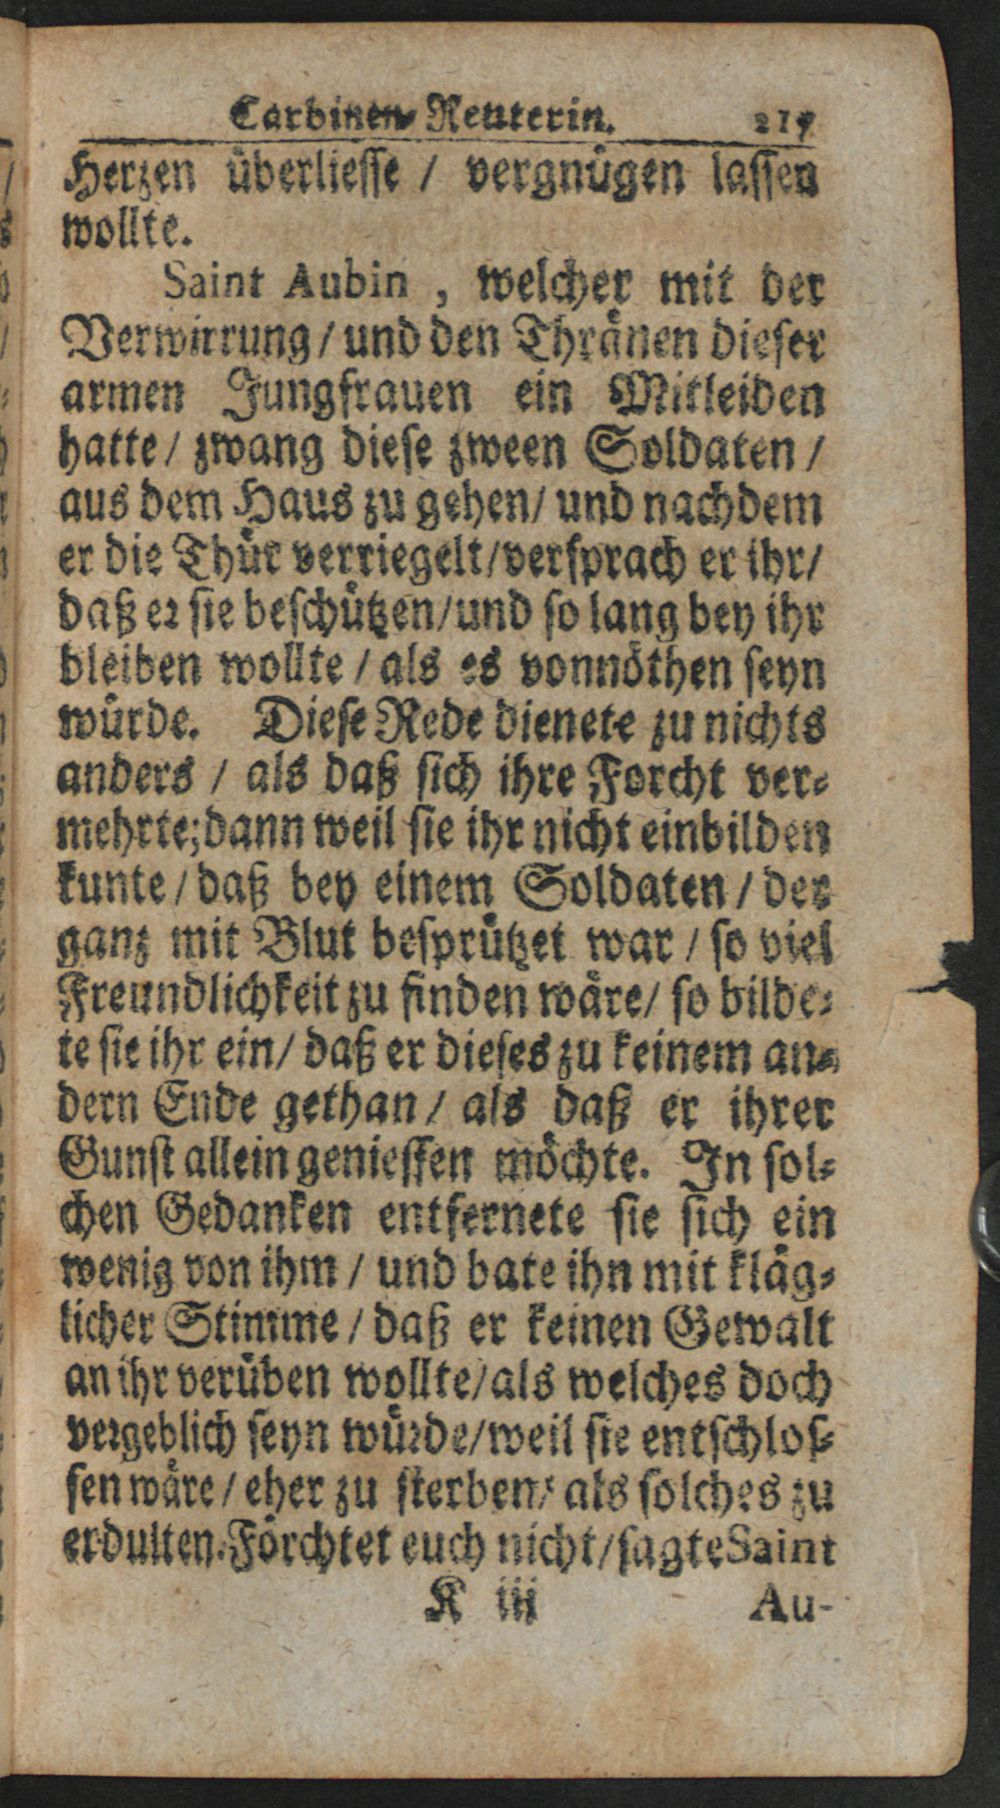 Carbinen-Reuterin. 217
Herzen überliesse / vergnügen lassen
wollte.
Saint Aubin, welcher mit der
Verwirrung / und den Thränen dieser
armen Jungfrauen ein Mitleiden
hatte / zwang diese zween Soldaten /
aus dem Haus zu gehen / und nachdem
er die Thür verriegelt / versprach er ihr /
daß er sie beschützen / und so lang bey ihr
bleiben wollte / als es vonnöthen seyn
würde. Diese Rede dienete zu nichts
anders / als daß sich ihre Forcht ver-
mehrte; dann weil sie ihr nicht einbilden
kunte / daß bey einem Soldaten / der
ganz mit Blut besprützet war / so viel
Freundlichkeit zu finden wäre / so bilde-
te sie ihr ein / daß er dieses zu keinem an-
dern Ende gethan / als daß er ihrer
Gunst allein geniessen möchte. In sol-
chen Gedanken entfernete sie sich ein
wenig von ihm / und bate ihn mit kläg-
licher Stimme / daß er keinen Gewalt
an ihr verüben wollte / als welches doch
vergeblich seyn würde / weil sie entschlos-
sen wäre / eher zu sterben / als solches zu
erdulten. Förchtet euch nicht / sagte Saint
K iij Au-